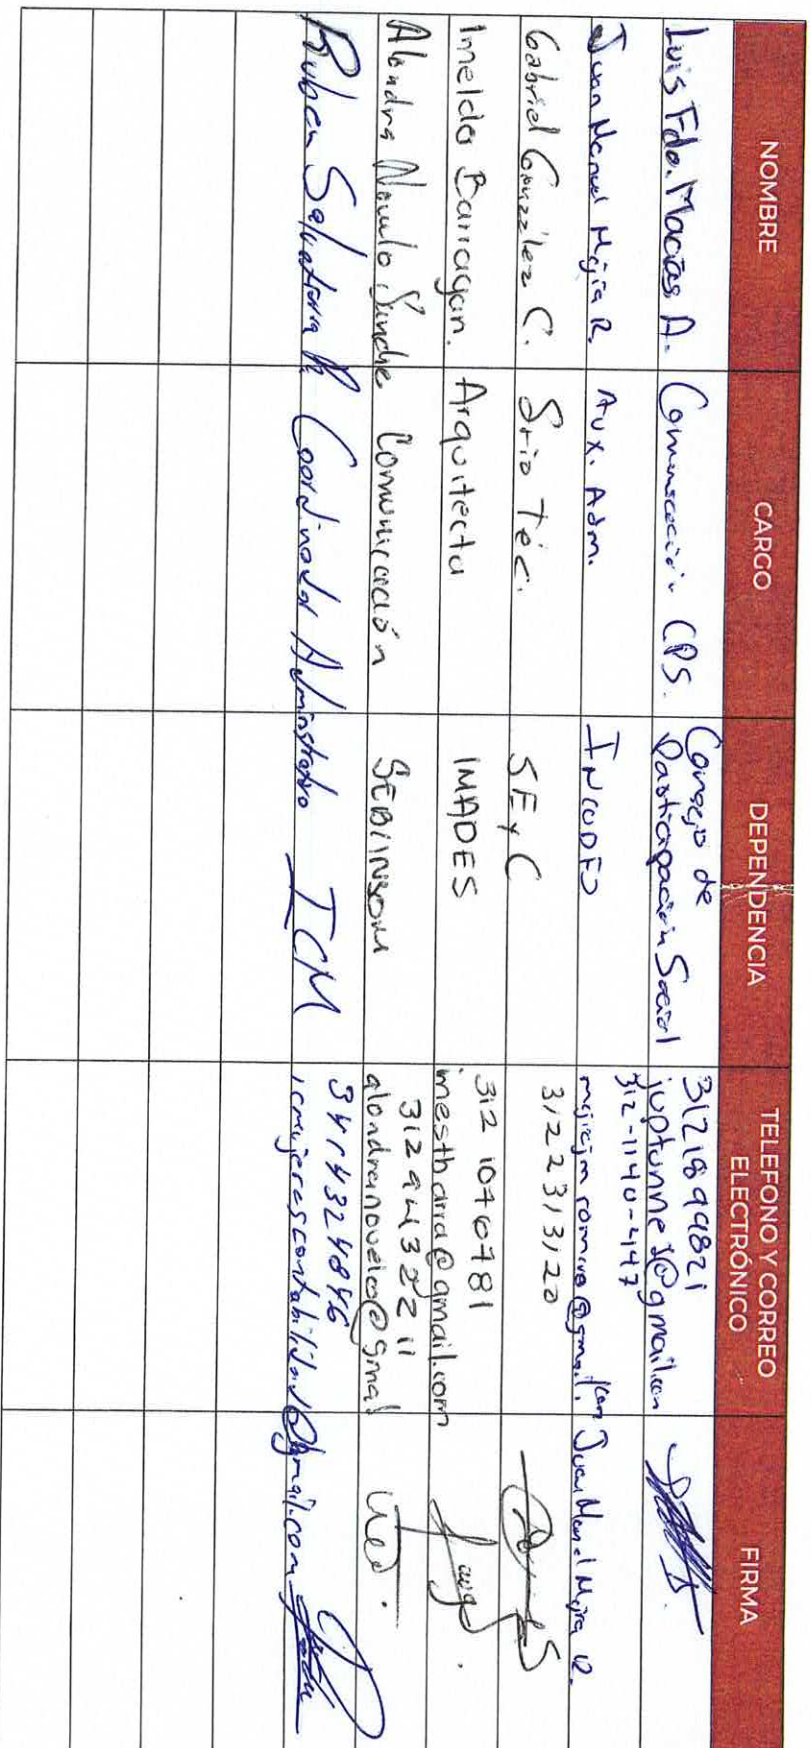 NOMBRE CARGO DEPENDENCIA TELEFONO Y CORREO ELECTRÓNICO FIRMA
Luis Fdo. Macías A. Comunicación CPS. Consejo de Participación Social 3121899821 @gmail.com
Juan Manuel Mejía R. Aux. Adm. INCODES 312-1140-447 @gmail.com Juan Manuel Mejía R.
Gabriel González C. Srio Téc. SE y C 3122313120
Imelda Barragan. Arquitecta IMADES 312 1076781 imestharra@gmail.com
Alondra Novelo Sanche Comunicación SEBIINSOM 3129438211 alondranovelo@gmal
Ruben Salvatierra R Coordinador Administrativo ICM icmujerescontabilidad@gmail.com